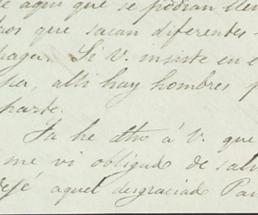 aquí que se podían llen
os que sacan diferentes
pagar. Si V. insiste en e
allí hay hombres p
charte.
Ya he dho á V. que
me vi obligado de sal
dejé aquel desgraciado Pa